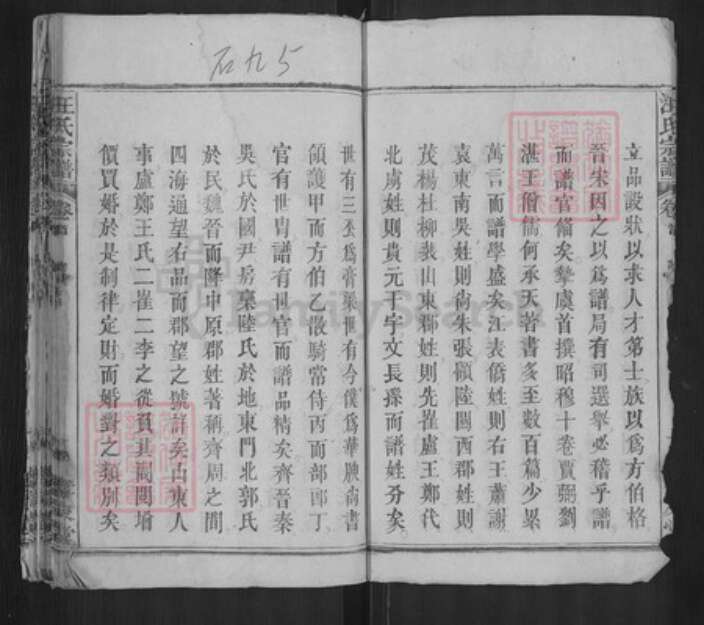 石九5
汪氏宗譜
立品設狀以求人才第士族以爲方伯格
晉宋因之以爲譜局有司選舉必稽乎譜
而譜官脩矣摯虞首撰昭穆十卷賈弼劉
湛王儉儒何承天著書多至數百篇少累
萬言而譜學盛矣江表僑姓則右王蕭謝
袁東南吳姓則尚朱張顧陸關西郡姓則
茂楊杜柳裴山東郡姓則先崔盧王鄭代
北虜姓則貴元于宇文長孫而譜姓分矣
世有三公爲膏粱世有令僕爲華腴尚書
領護甲而方伯乙散騎常侍丙而部郎丁
官有世冑譜有世官而譜品精矣齊晉秦
吳氏於國尹房裴陸氏於地東門北郭氏
於民魏晉而降中原郡姓著稱齊周之間
四海通望右品而郡望之號詳矣山東人
事盧鄭王氏二崔二李之從貧其閥閱增
價買婚於是制律定財而婚對之類別矣
汪氏宗譜
FamilySearch